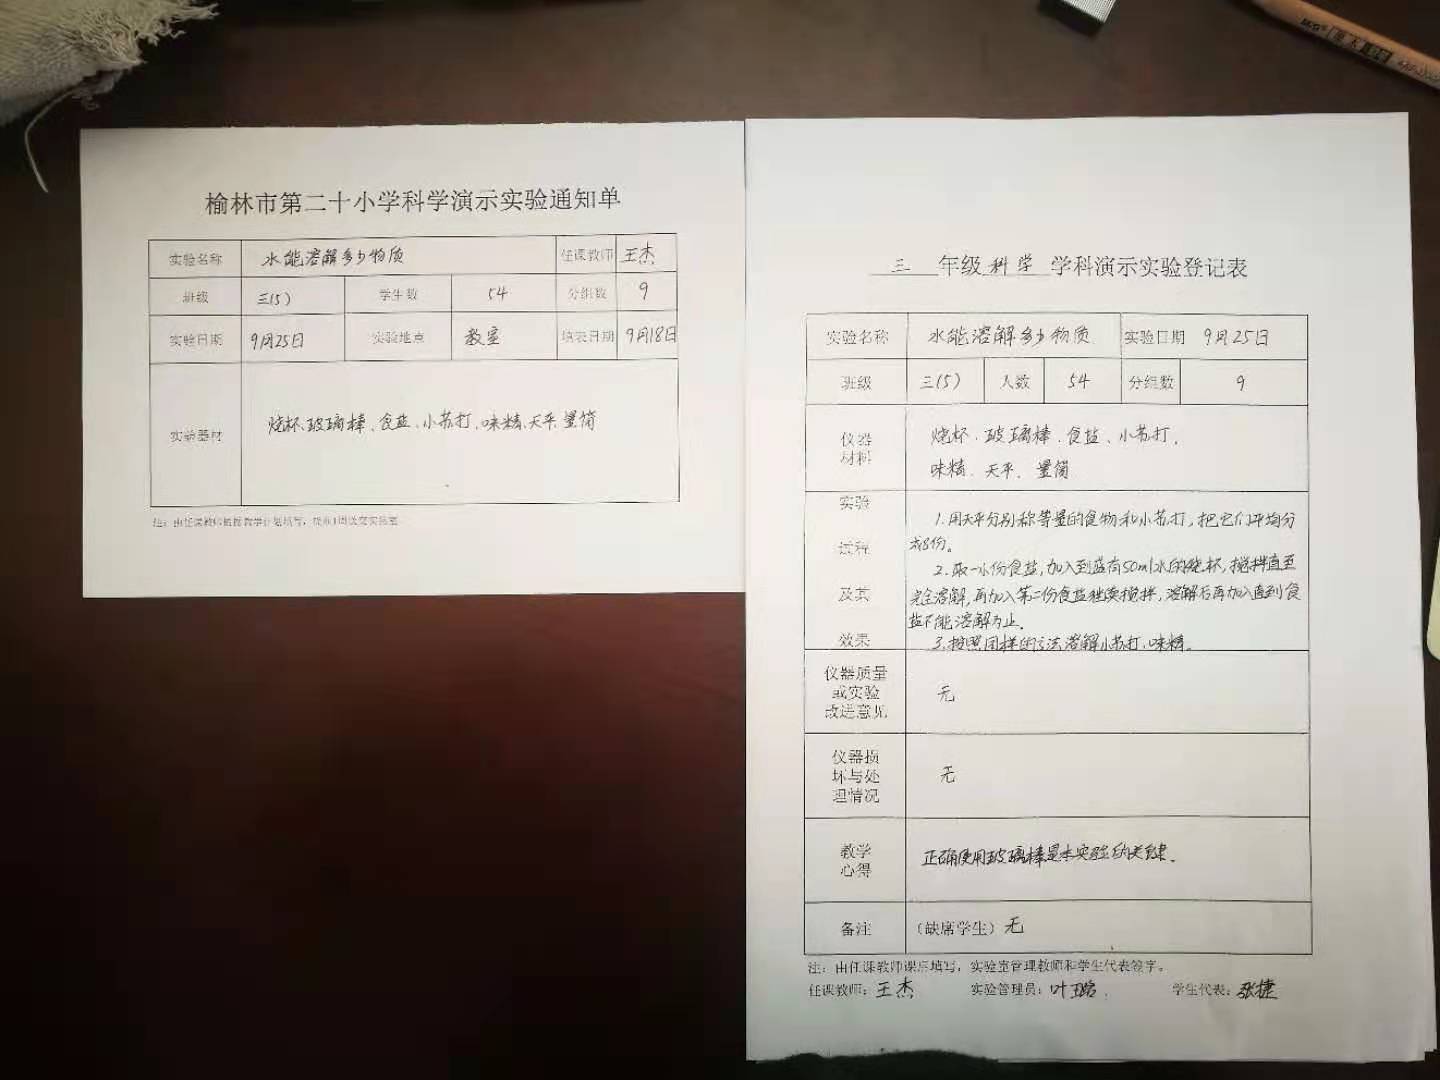 榆林市第二十小学科学演示实验通知单
实验名称 水能溶解多少物质 任课教师 王杰
班级 三(5) 学生数 54 分组数 9
实验日期 9月25日 实验地点 教室 填表日期 9月18日
实验器材 烧杯、玻璃棒、食盐、小苏打、味精、天平、量筒
注：由任课教师根据教学计划填写，提前1周送交实验室
三 年级 科学 学科演示实验登记表
实验名称 水能溶解多少物质 实验日期 9月25日
班级 三(5) 人数 54 分组数 9
仪器材料
烧杯、玻璃棒、食盐、小苏打、
味精、天平、量筒
实验
过程
及其
效果
1.用天平分别称等量的食物和小苏打，把它们平均分
成8份。
2.取一小份食盐，加入到盛有50ml水的烧杯，搅拌直至
完全溶解，再加入第二份食盐继续搅拌，溶解后再加入直到食
盐不能溶解为止。
3.按照同样的方法溶解小苏打、味精。
仪器质量
或实验
改进意见
无
仪器损
坏与处
理情况
无
教学
心得
正确使用玻璃棒是本实验的关键。
备注 （缺席学生）无
注：由任课教师课后填写，实验室管理教师和学生代表签字。
任课教师：王杰 实验管理员：叶 学生代表：张捷
M&G